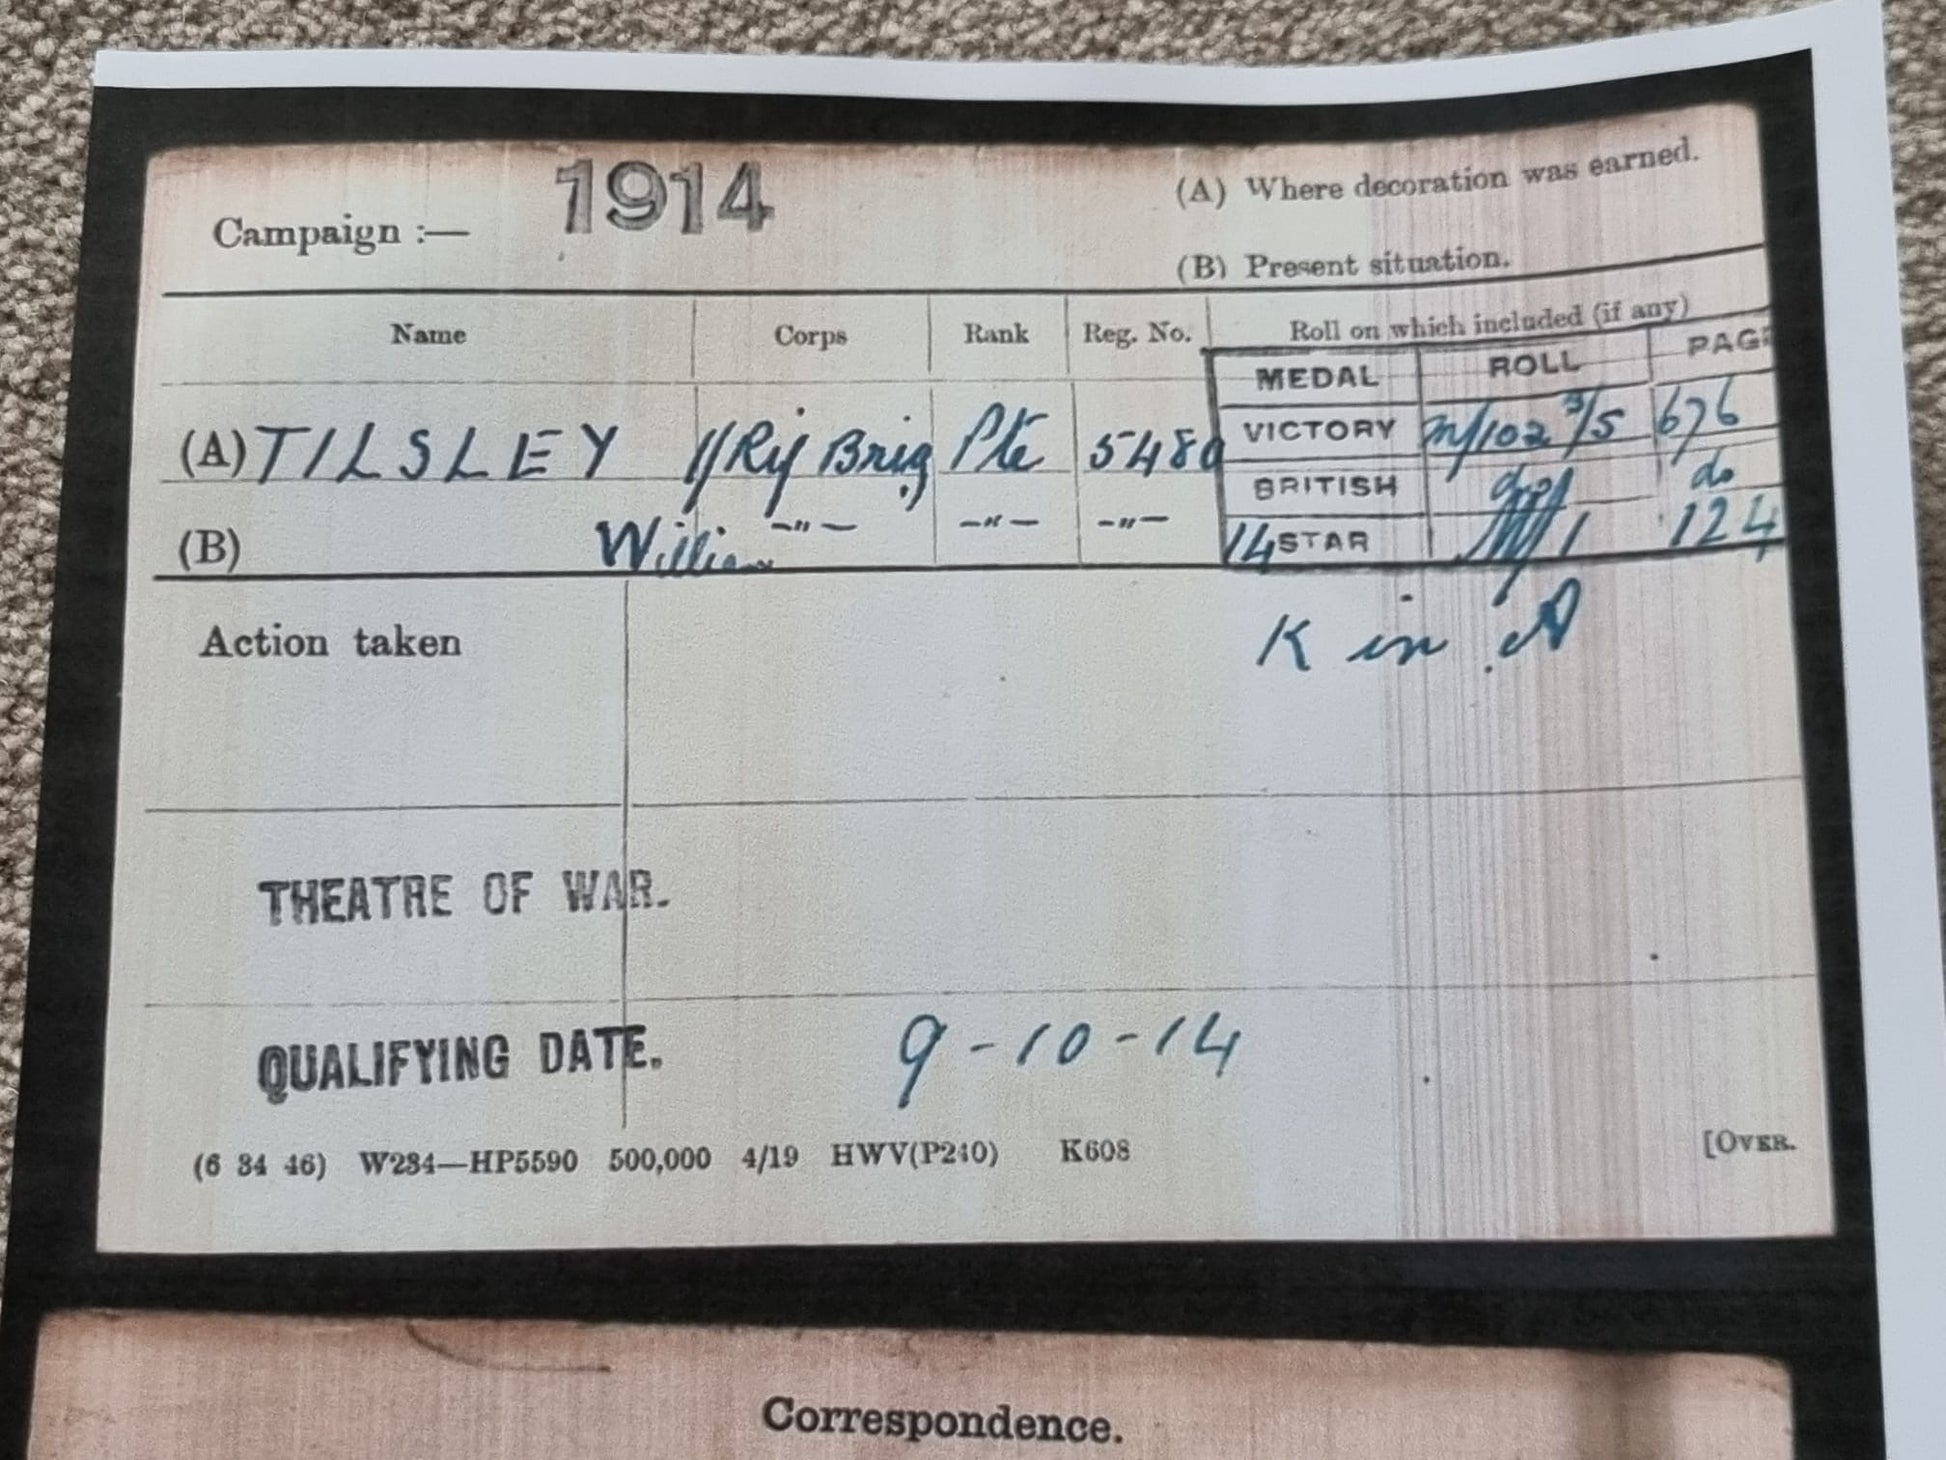 Campaign :— 1914
(A) Where decoration was earned.
(B) Present situation.
Name Corps Rank Reg. No. Roll on which included (if any)
MEDAL ROLL PAGE
(A) TILSLEY 1/Rif Brig Pte 5480 VICTORY 102 3/5 676
BRITISH do do
(B) William —"— —"— —"— 14 STAR 1 124
Action taken K in A
THEATRE OF WAR.
QUALIFYING DATE. 9-10-14
(6 34 46) W234—HP5590 500,000 4/19 HWV(P240) K608 [OVER.
Correspondence.